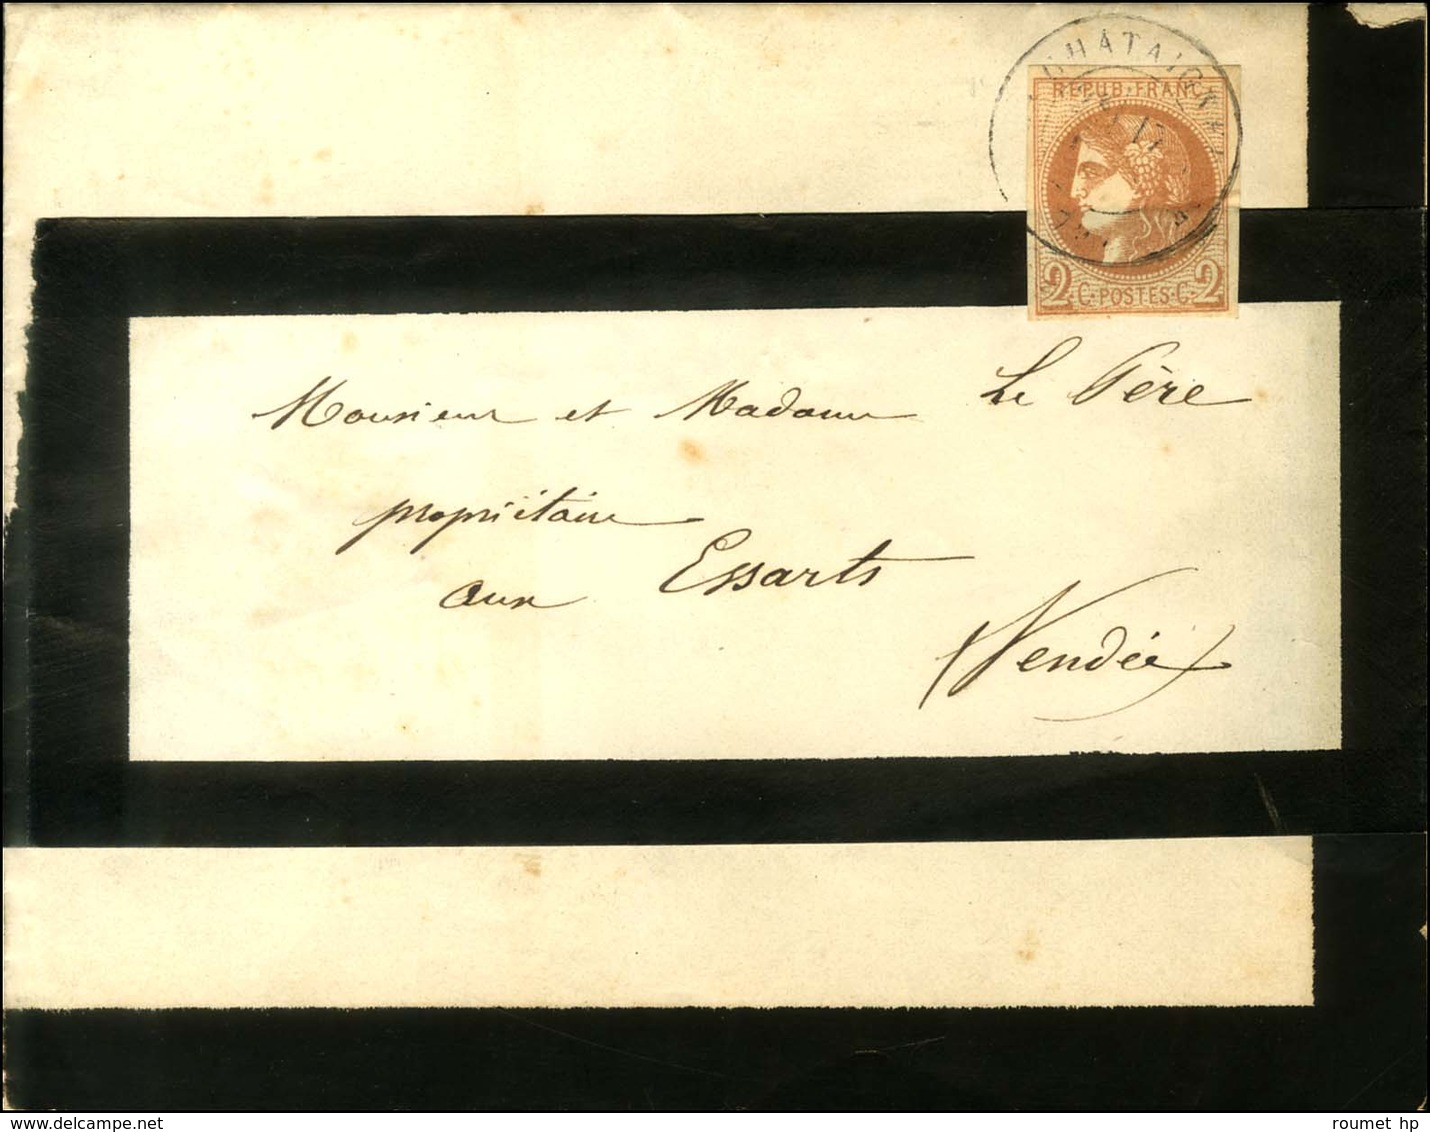 REPUB·FRANC
2·C·POSTES·C·2
Monsieur et Madame Le Père
propriétaire
aux Essarts
Vendée
www.delcampe.net
roumet hp